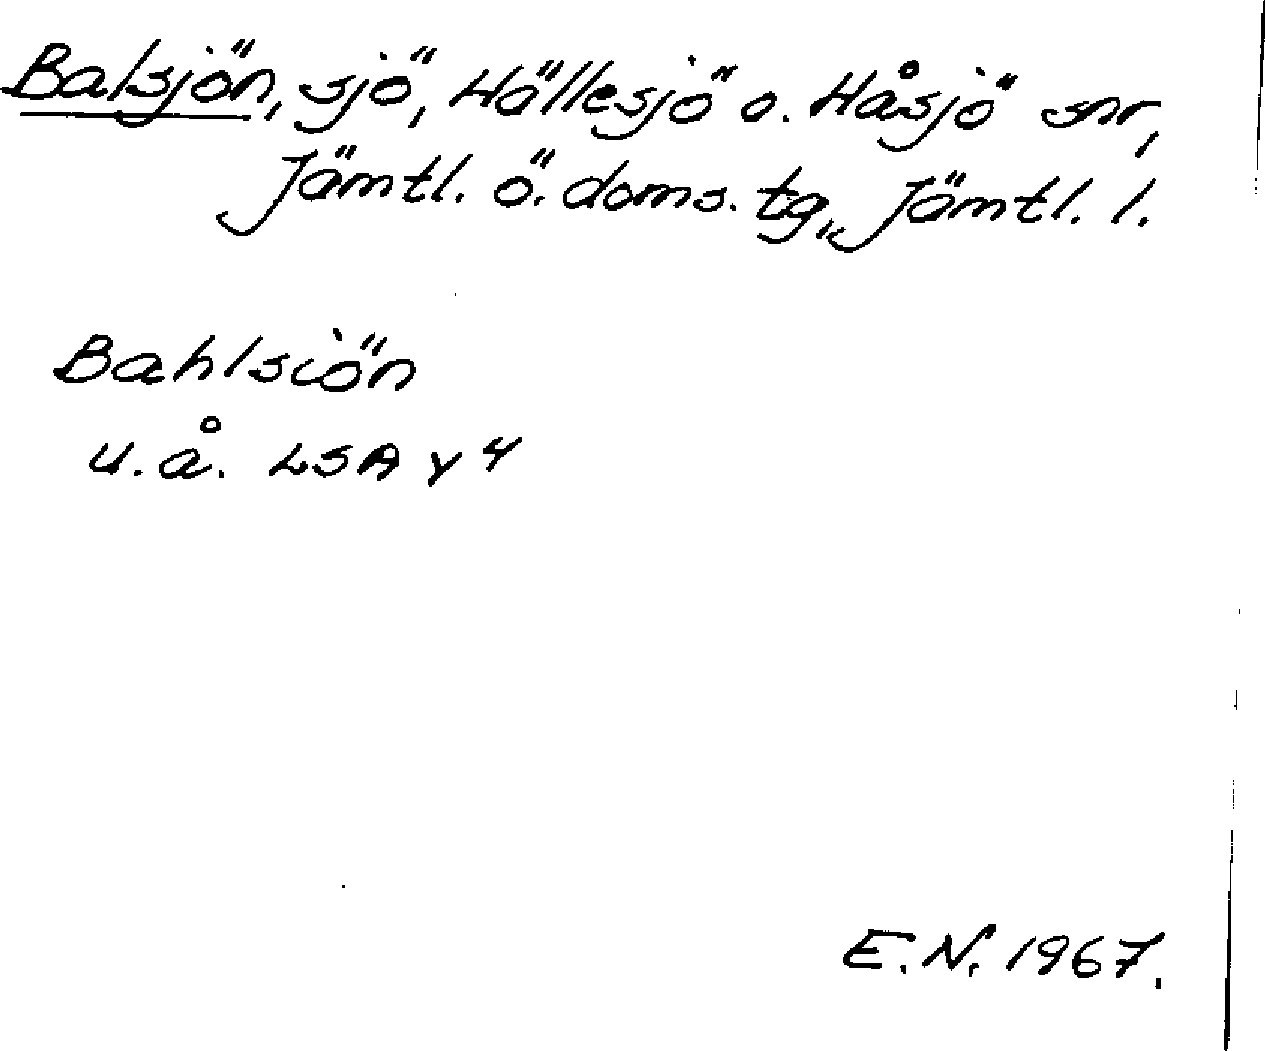 Balsjön, sjö, Hällesjö o. Håsjö snr,
Jämtl. ö. doms. tg., Jämtl. l.
Bahlsiön
u.å. LSA Y 4
E.N. 1967.